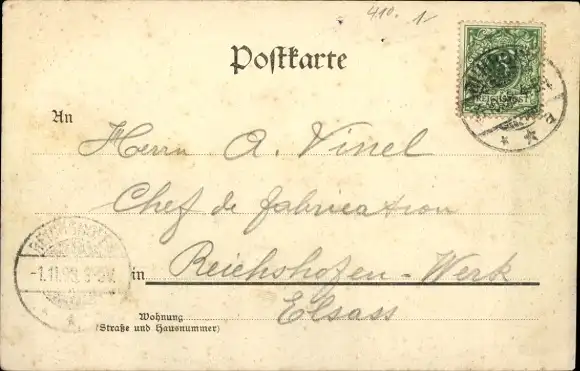 410. 1/
Postkarte
REICHSPOST
An
Herrn A. Vinel
Chef de fabrication
in Reichshofen-Werk
Elsass
Wohnung
(Straße und Hausnummer)